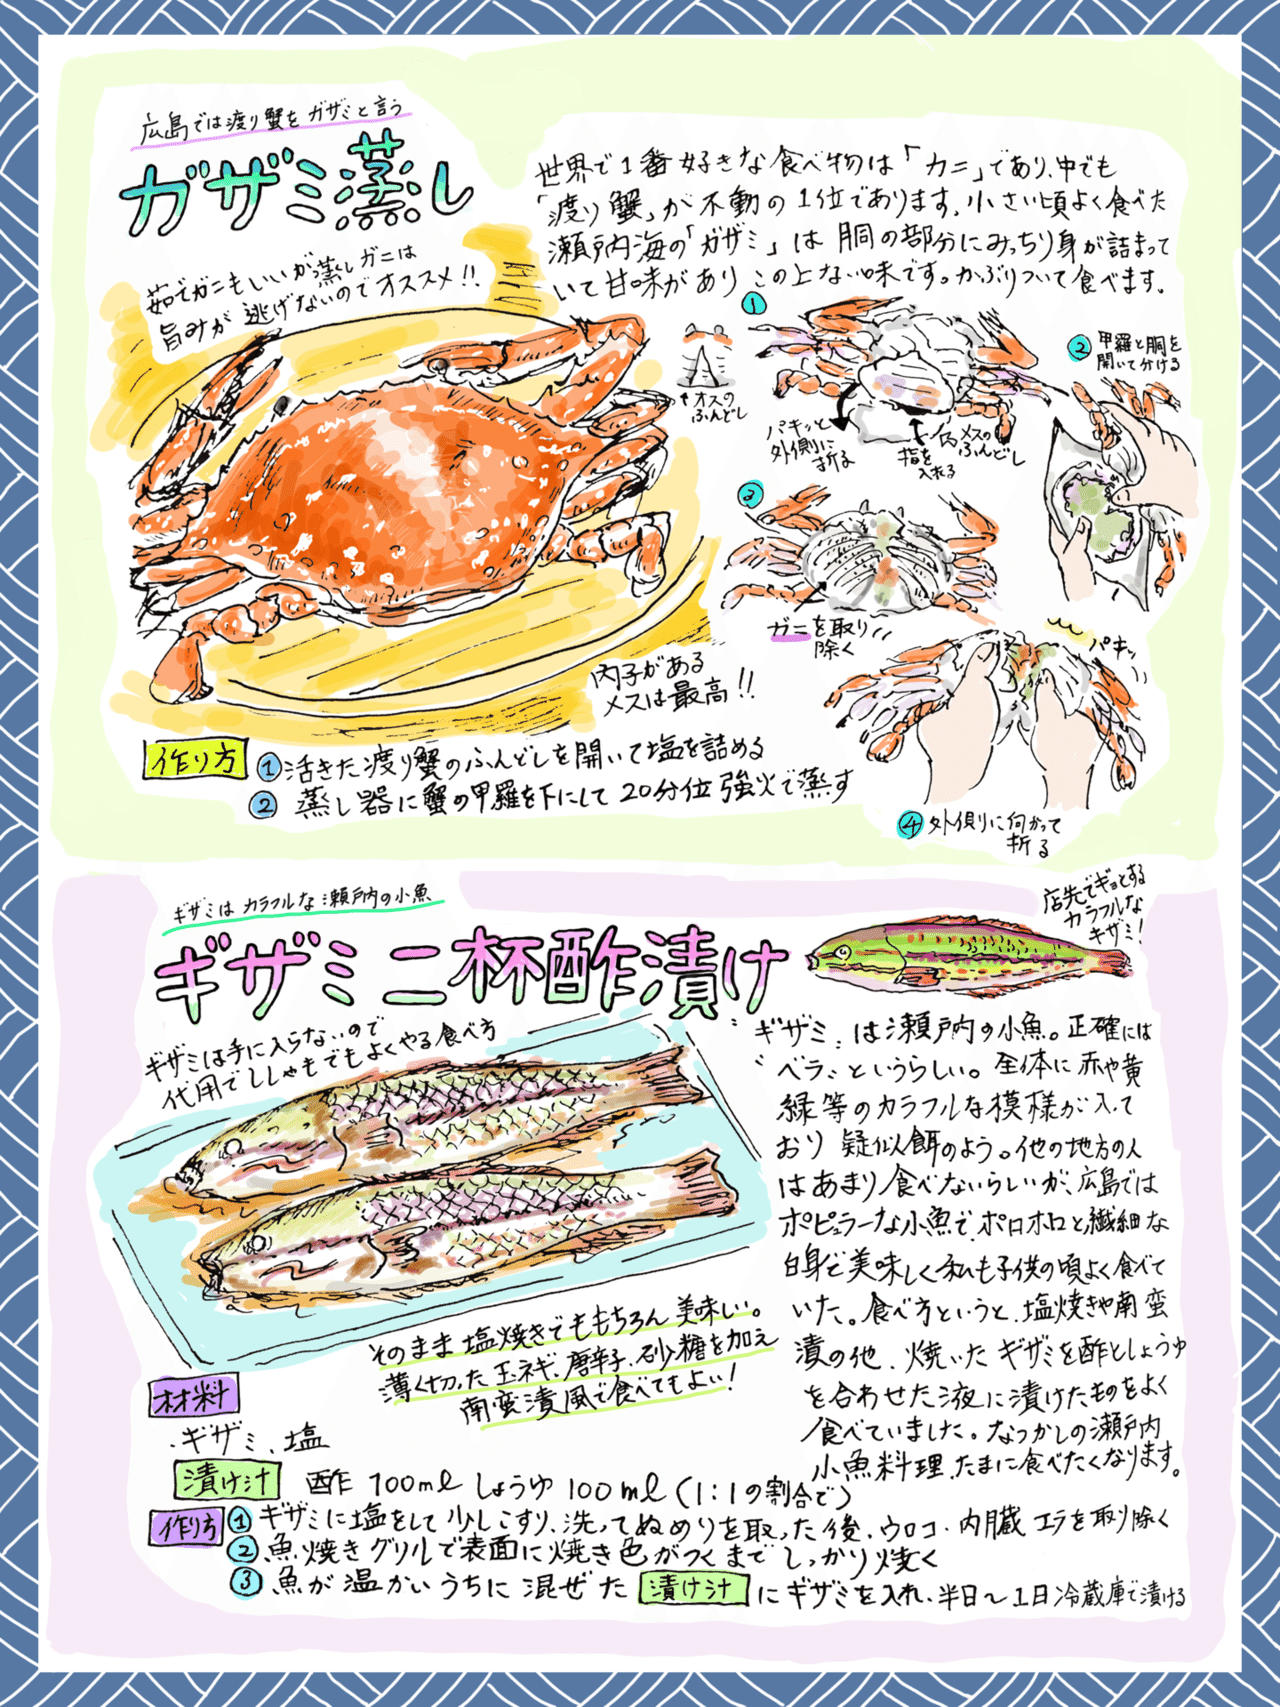 広島では渡り蟹をガザミと言う
ガザミ蒸し
茹でガニもいいが蒸しガニは
旨みが逃げないのでオススメ!!
世界で1番好きな食べ物は「カニ」であり、中でも
「渡り蟹」が不動の1位であります。小さい頃よく食べた
瀬戸内海の「ガザミ」は胴の部分にみっちり身が詰まって
いて甘味がありこの上ない味です。かぶりついて食べます。
↑オスの
ふんどし
①
パキッと
外側に
折る
指を
入れる
メスの
ふんどし
②甲羅と胴を
開いて分ける
③
ガニを取り
除く
パキッ
④外側に向かって
折る
内子がある
メスは最高!!
作り方
①活きた渡り蟹のふんどしを開いて塩を詰める
②蒸し器に蟹の甲羅を下にして20分位強火で蒸す
ギザミはカラフルな瀬戸内の小魚
ギザミ二杯酢漬け
店先でギョとする
カラフルな
ギザミ!
ギザミは手に入らないので
代用でししゃもでもよくやる食べ方
"ギザミ"は瀬戸内の小魚。正確には
"ベラ"というらしい。全体に赤や黄
緑等のカラフルな模様が入って
おり疑似餌のよう。他の地方の人
はあまり食べないらしいが、広島では
ポピュラーな小魚で、ホロホロと繊細な
白身で美味しく私も子供の頃よく食べて
いた。食べ方というと、塩焼きや南蛮
漬の他、焼いたギザミを酢としょうゆ
を合わせた液に漬けたものをよく
食べていました。なつかしの瀬戸内
小魚料理、たまに食べたくなります。
そのまま塩焼きでももちろん美味しい。
薄く切った玉ネギ、唐辛子、砂糖を加え
南蛮漬風で食べてもよい!
材料
・ギザミ、塩
漬け汁 酢100mlしょうゆ100ml(1:1の割合で)
作り方 ①ギザミに塩をして少しこすり、洗ってぬめりを取った後、ウロコ・内臓エラを取り除く
②魚焼きグリルで表面に焼き色がつくまでしっかり焼く
③魚が温かいうちに混ぜた漬け汁にギザミを入れ、半日〜1日冷蔵庫で漬ける